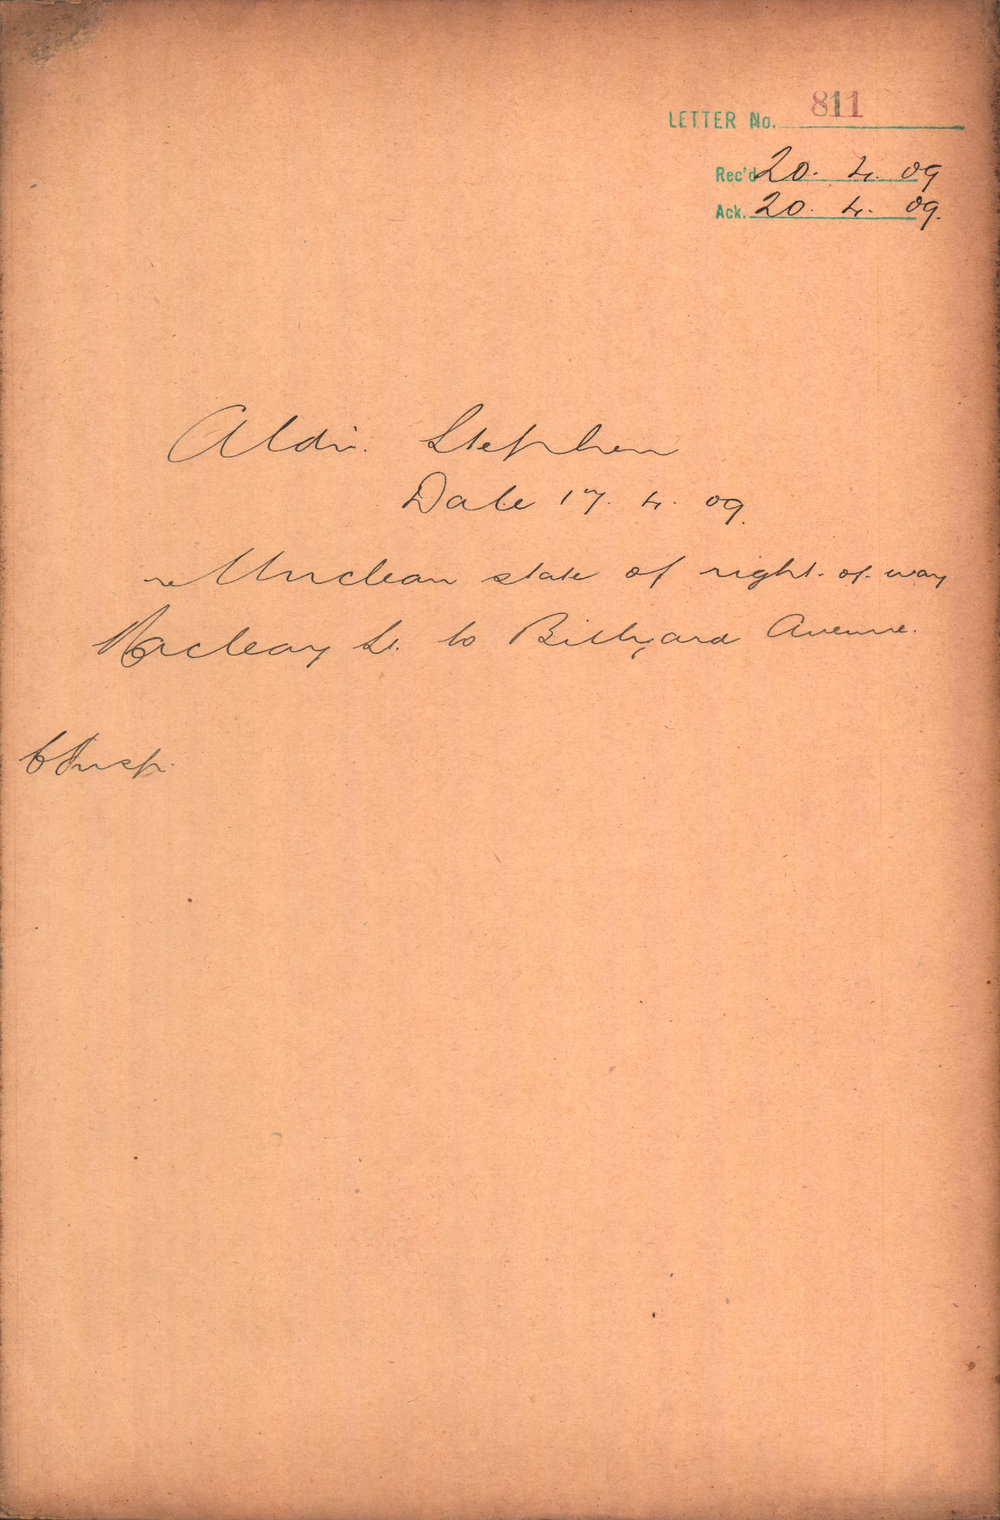 LETTER No. 811
Rec'd 20. 4. 09
Ack. 20. 4. 09.
Aldn. Stephen
Date 17. 4. 09.
re Unclean state of right-of-way
Macleay St. to Billyard Avenue.
C Insp.